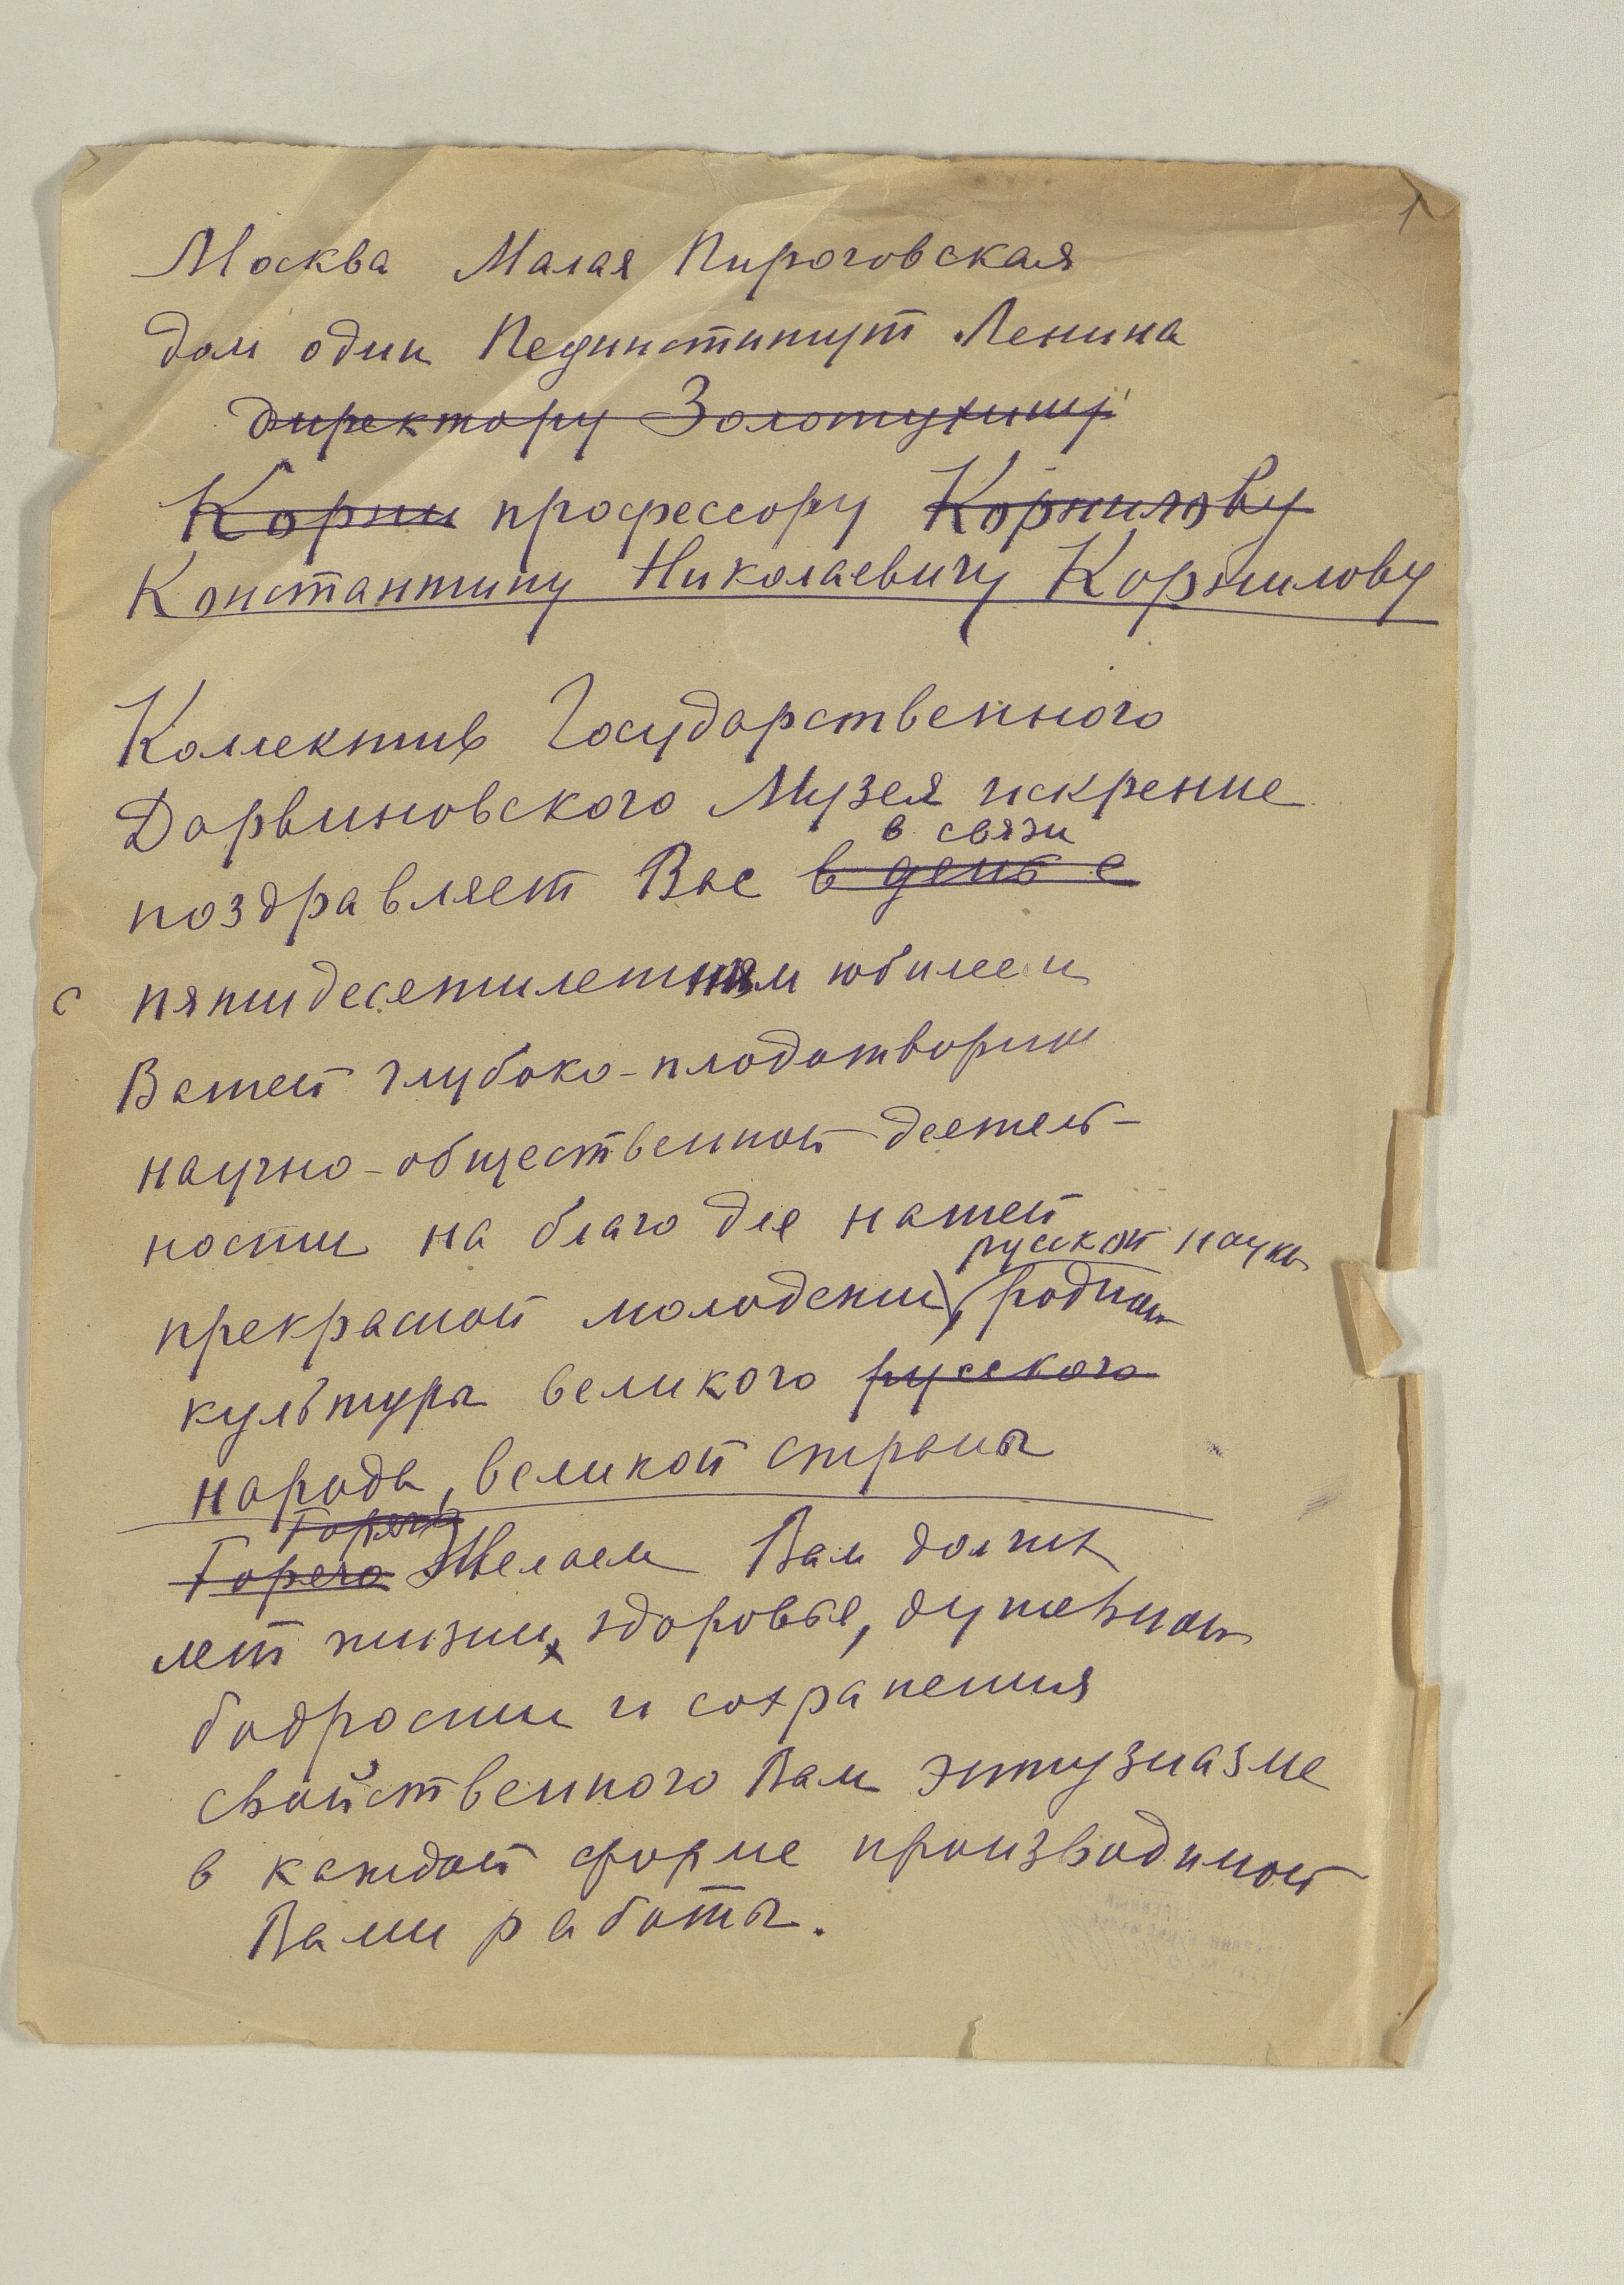 1
Москва Малая Пироговская
дом один Пединститут Ленина
директору Золотухину
Корни профессору Корнилову
Константину Николаевичу Корнилову
Коллектив Государственного
Дарвиновского Музея искренне
в связи
поздравляет Вас в день с
с пятидесетилетним юбилеем
Вашей глубоко-плодотворной
научно-общественной деятель-
ности на благо для нашей
русской науки
прекрасной молодежи, родной
культуры великого русского
народа, великой страны
Горячо
Горечо Желаем Вам долгих
лет жизни, здоровья, душевной
бодрости и сохранения
свойственного Вам энтузиазма
в каждой форме производимой
Вами работы.